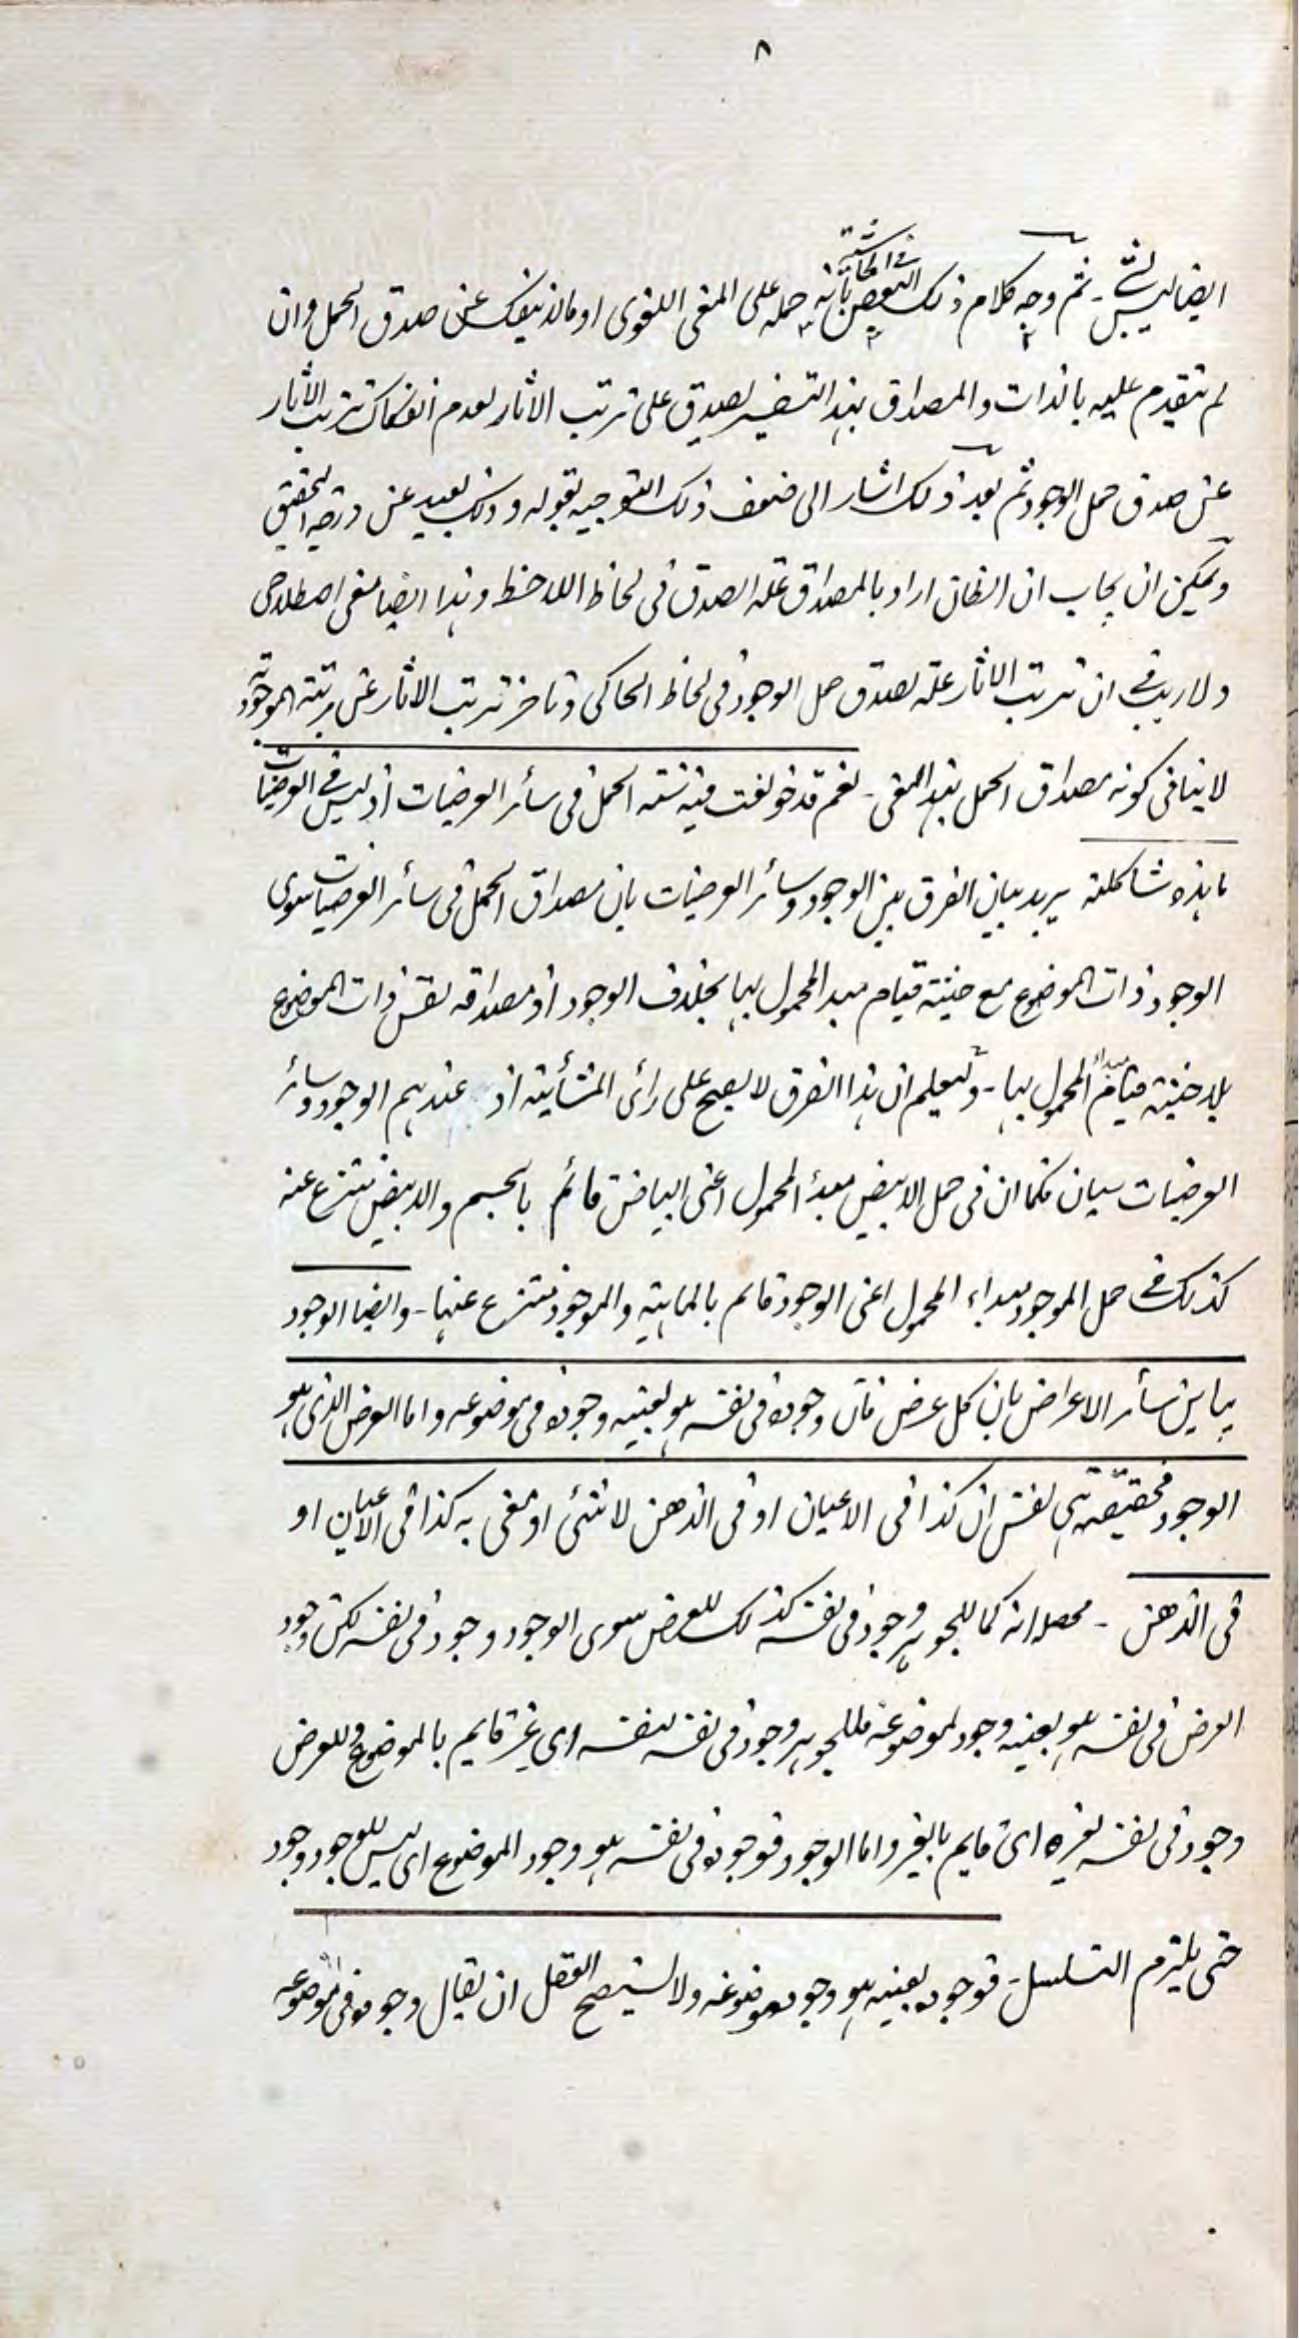 ٨
فى الحاشية
ايضا ليس بشئ - ثم وجه كلام ذلك البعض بأنه حمله على المعنى اللغوى او مالا ينفك عن صدق الحمل وان
لم يتقدم عليه بالذات والمصداق بهذا التفسير يصدق على ترتب الاثار لعدم انفكاك ترتب الاثار
عن صدق حمل الوجود ثم بعد ذلك اشار الى ضعف ذلك التوجيه بقوله وذلك بعيد عن درجة التحقيق
ويمكن ان يجاب ان الظان اراد بالمصداق علة الصدق فى لحاظ اللاحظ وهذا ايضا معنى اصطلاحى
ولا ريب فى ان ترتب الاثار علة لصدق حمل الوجود فى لحاظ الحاكى وتاخر ترتب الاثار عن مرتبة الموجودية
لا ينافى كونه مصداق الحمل بهذا المعنى - نعم قد خولفت فيه سنة الحمل فى سائر العرضيات اذ ليس فى العرضيات
ما هذه شاكلته يريد بيان الفرق بين الوجود وسائر العرضيات بان مصداق الحمل فى سائر العرضيات سوى
الوجود ذات الموضوع مع حيثية قيام مبدا المحمول بها بخلاف الوجود اذ مصداقه نفس ذات الموضوع
بلا حيثية قيام مبداء المحمول بها - وليعلم ان هذا الفرق لا يصح على رأى المشائية اذ عندهم الوجود وسائر
العرضيات سيان فكما ان فى حمل الابيض مبدأ المحمول اعنى البياض قائم بالجسم والابيض ينتزع عنه
كذلك فى حمل الموجود مبداء المحمول اعنى الوجود قايم بالماهية والموجود ينتزع عنها - وايضا الوجود
يباين سائر الاعراض بان كل عرض فان وجوده فى نفسه هو بعينه وجوده فى موضوعه واما العرض الذى هو
الوجود فحقيقته هى نفس ان كذا فى الاعيان او فى الذهن لا شئ او معنى به كذا فى الاعيان او
فى الذهن - محصله انه كما للجوهر وجود فى نفسه كذلك للعرض سوى الوجود وجود فى نفسه لكن وجود
العرض فى نفسه هو بعينه وجود لموضوعه فللجوهر وجود فى نفسه لنفسه اى غير قايم بالموضوع وللعرض
وجود فى نفسه لغيره اى قايم بالغير واما الوجود فوجوده فى نفسه هو وجود الموضوع اى ليس للوجود وجود
حتى يلتزم التسلسل - فوجوده بعينه هو وجود موضوعه ولا يستصح العقل ان يقال وجوده فى موضوعه